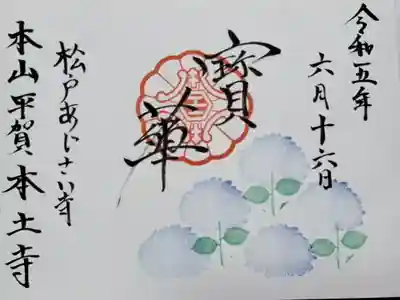 令和五年
六月十六日
寶華
松戸あじさい寺
本山平賀本土寺